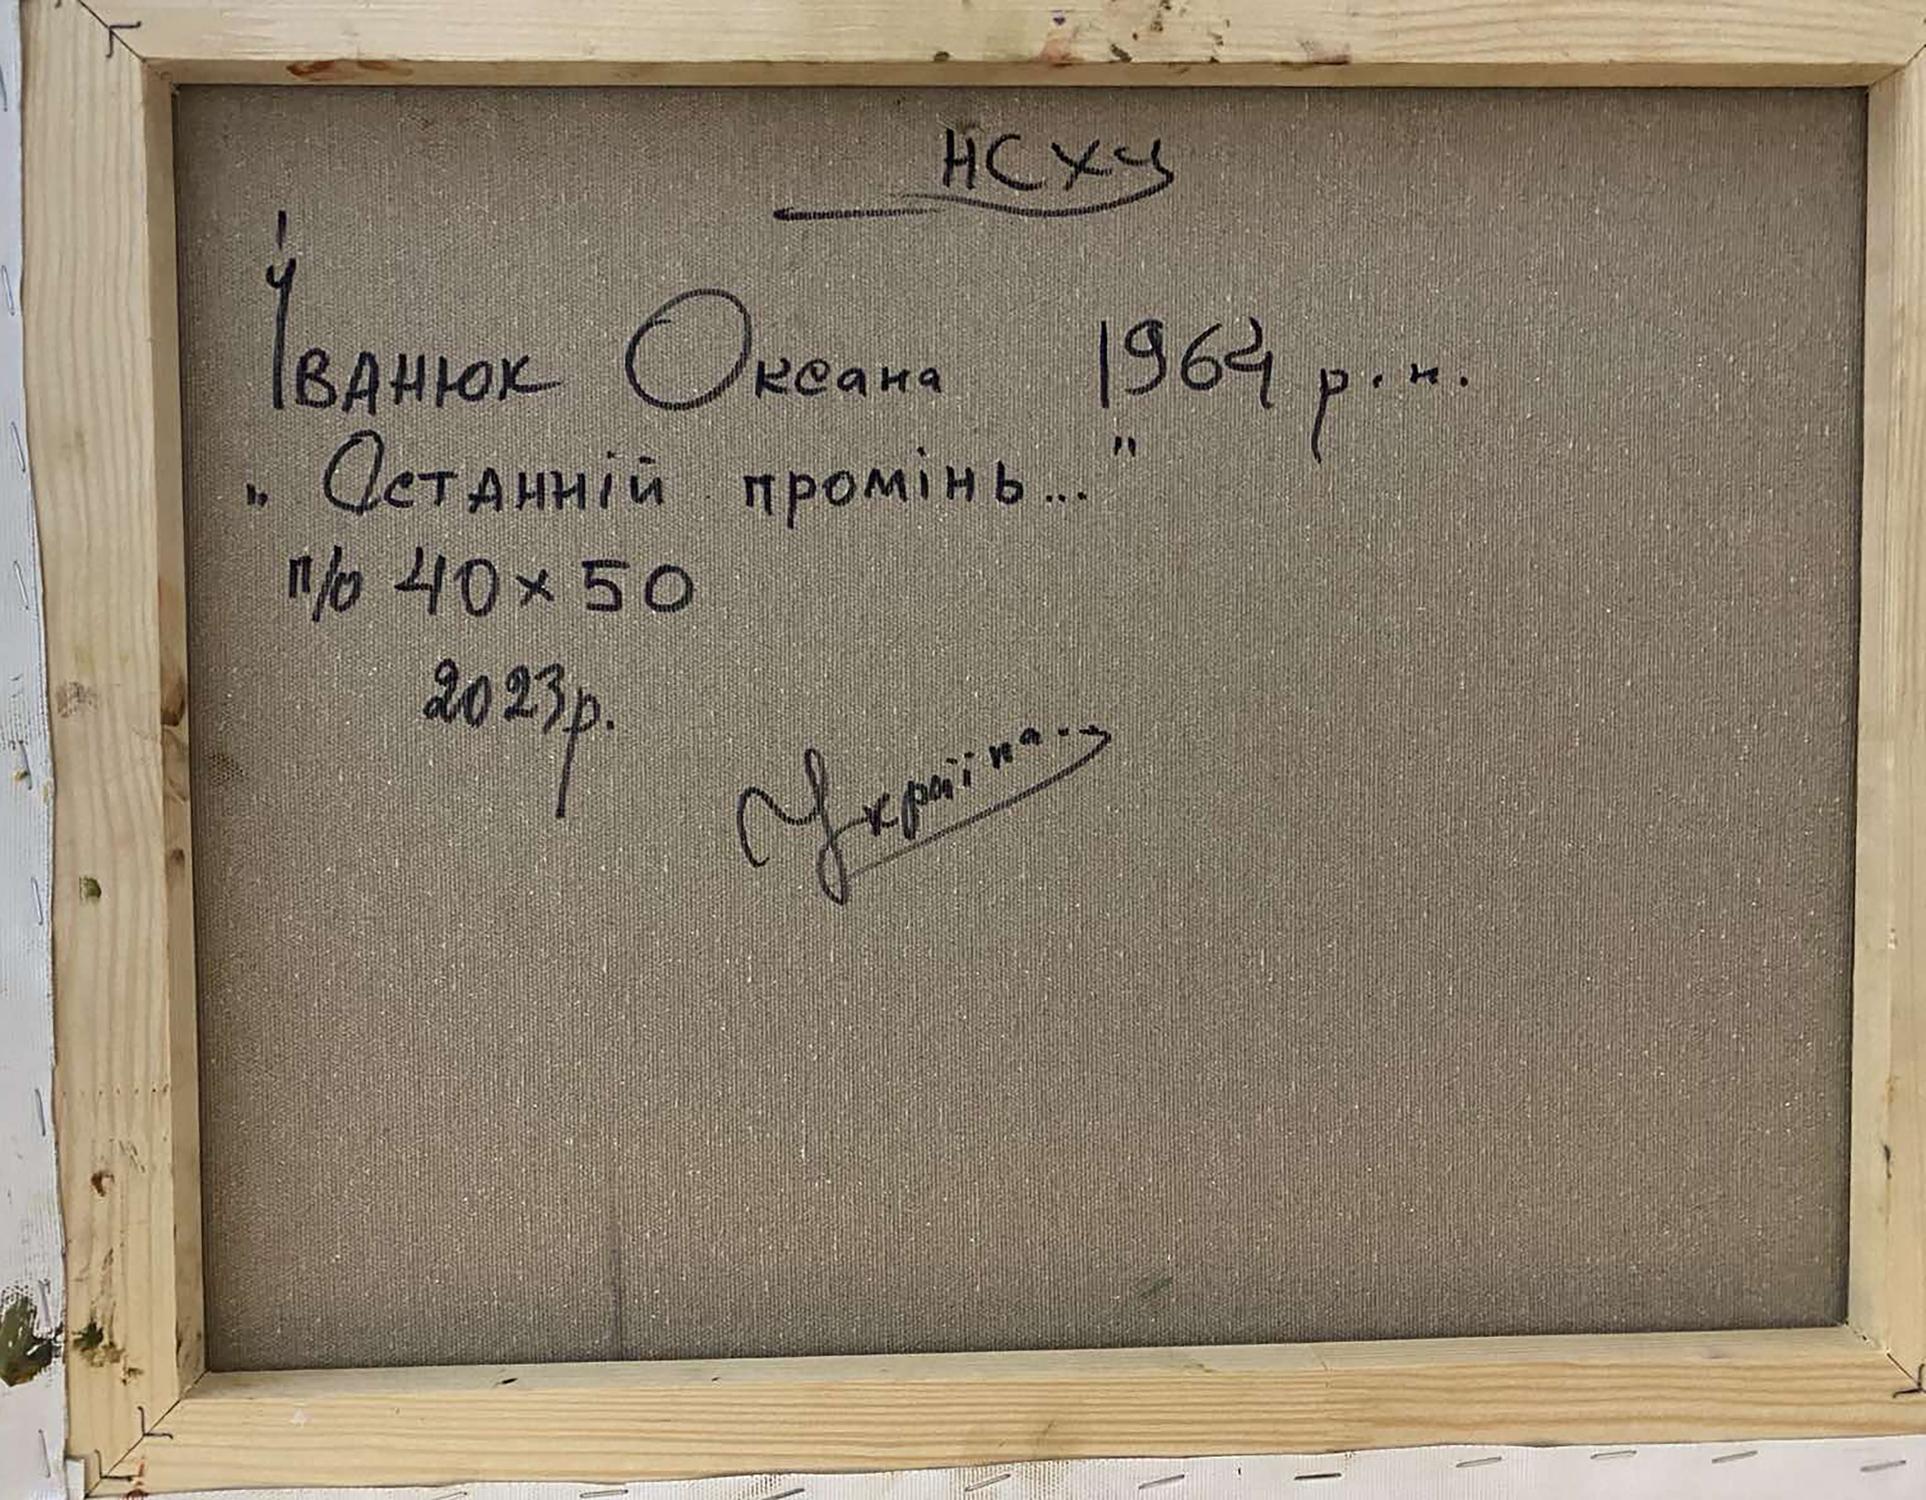 НСХУ
Іванюк Оксана 1964 р.н.
„Останній промінь..."
п/о 40x50
2023р.
Україна..